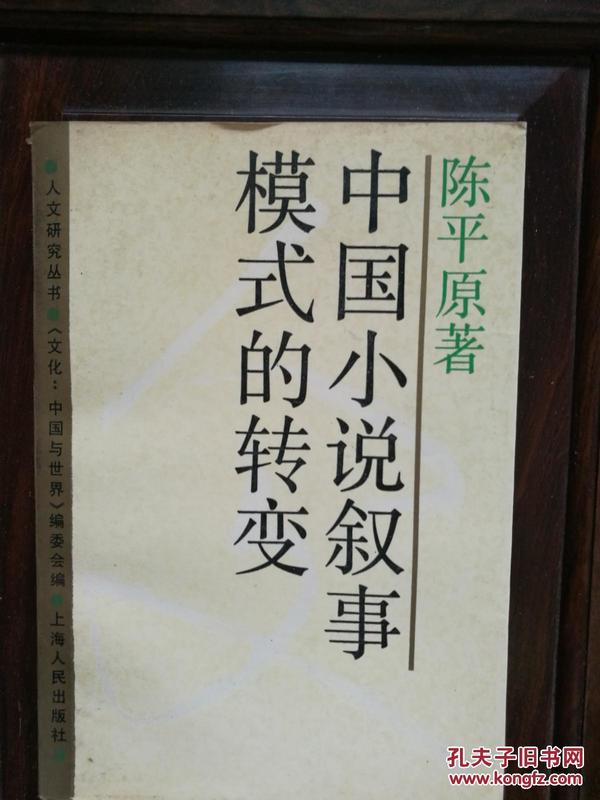 陈平原著
中国小说叙事
模式的转变
人文研究丛书
《文化：中国与世界》编委会编
上海人民出版社
孔夫子旧书网
www.kongfz.com